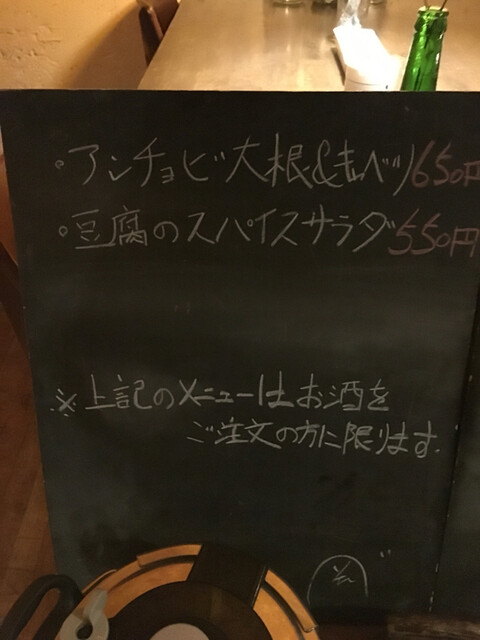 ・アンチョビ大根&キャベツ 650円
・豆腐のスパイスサラダ 550円
※上記のメニューはお酒を
ご注文の方に限ります。